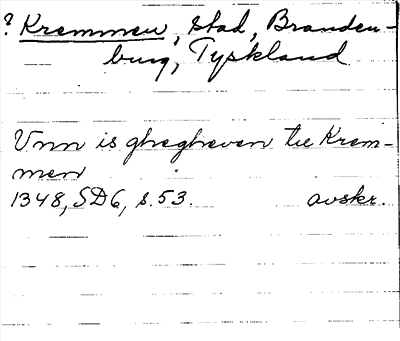 ? Kremmen, stad, Branden-
burg, Tyskland
Vnn is ghegheven tve Krem-
men
1348, SD6, s. 53. avskr.